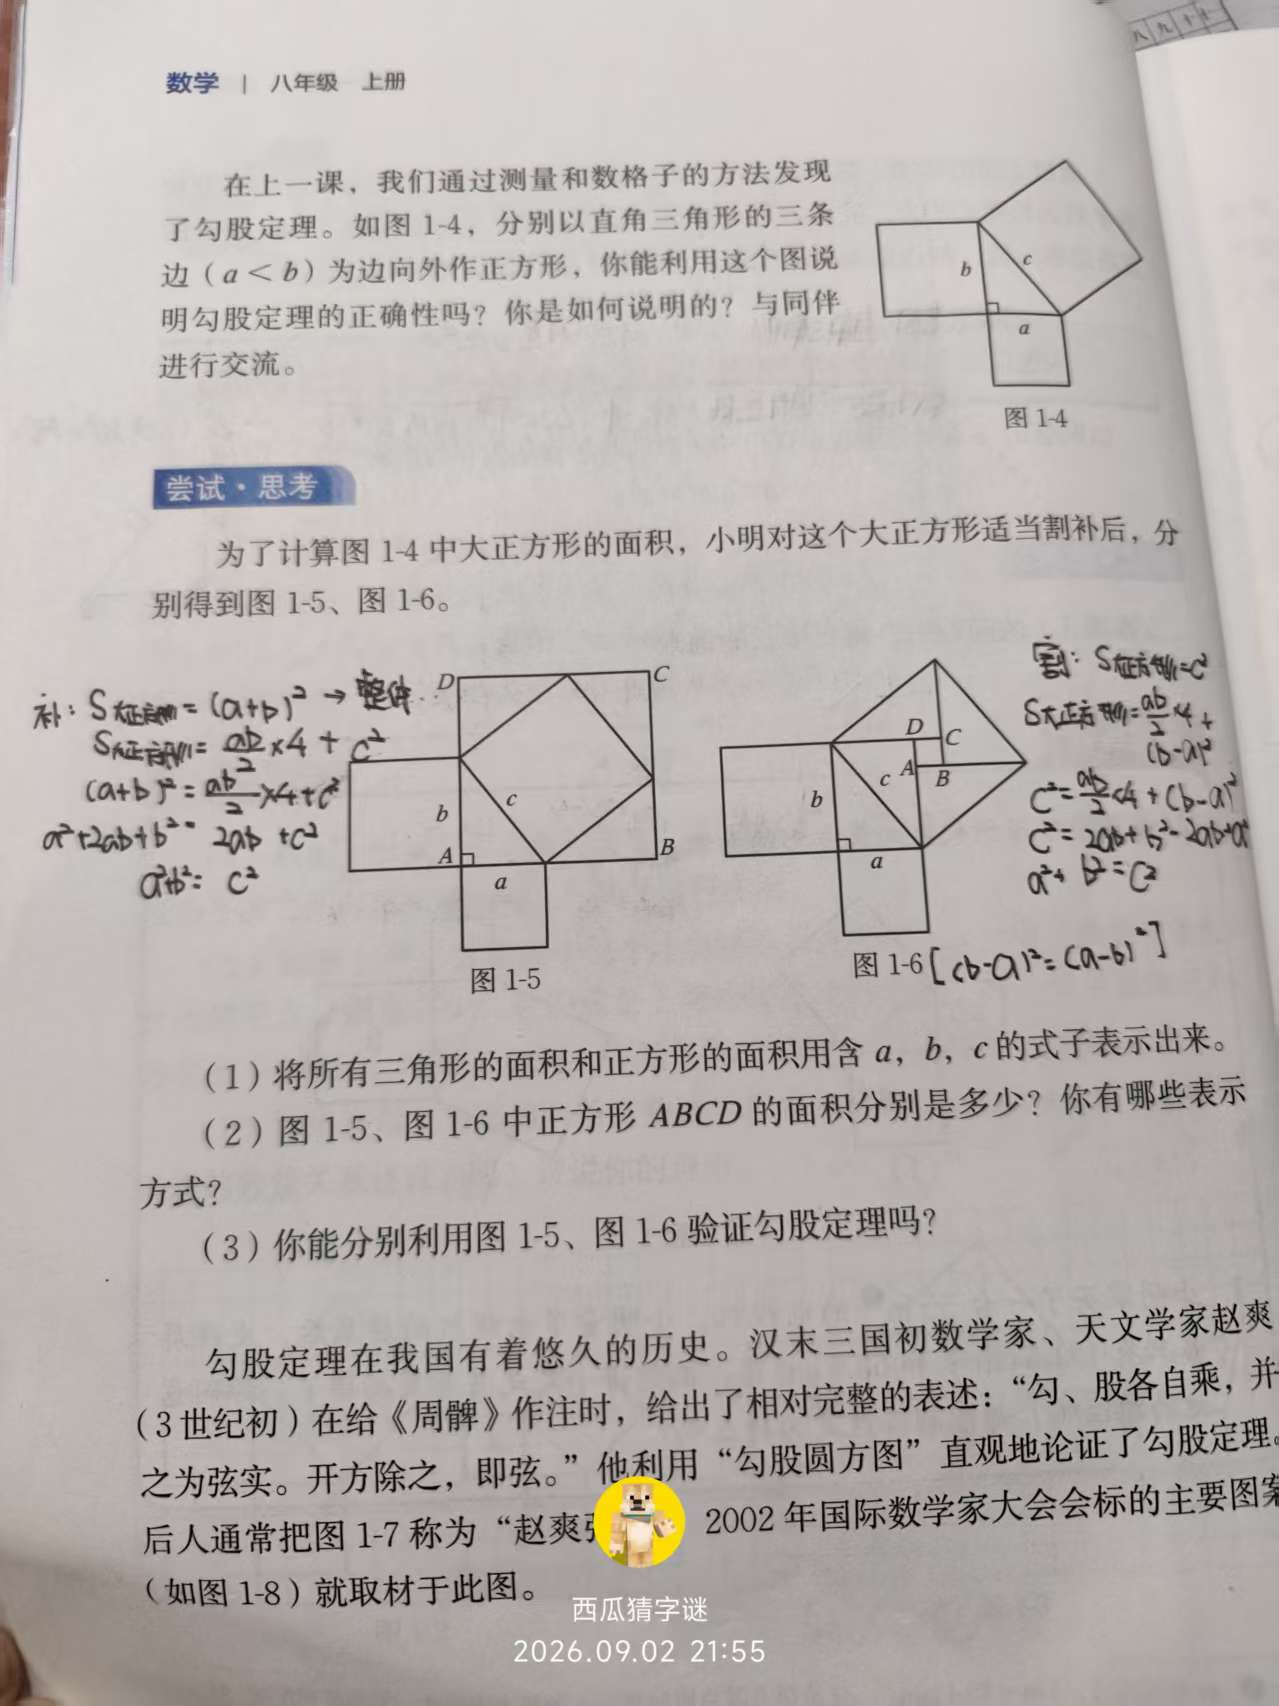 数学 | 八年级 上册
八 九 十
在上一课，我们通过测量和数格子的方法发现
了勾股定理。如图 1-4，分别以直角三角形的三条
边（a < b）为边向外作正方形，你能利用这个图说
明勾股定理的正确性吗？你是如何说明的？与同伴
进行交流。
b
c
a
图 1-4
尝试·思考
为了计算图 1-4 中大正方形的面积，小明对这个大正方形适当割补后，分
别得到图 1-5、图 1-6。
补：S大正方形=(a+b)² → 整体
S大正方形=ab/2×4+c²
(a+b)²=ab/2×4+c²
a²+2ab+b²=2ab+c²
a²+b²=c²
D
C
b
c
A
B
a
图 1-5
D
C
c
A
B
b
a
图 1-6
割：S大正方形=c²
S大正方形=ab/2×4+
(b-a)²
c²=ab/2×4+(b-a)²
c²=2ab+b²-2ab+a²
a²+b²=c²
[(b-a)²=(a-b)²]
（1）将所有三角形的面积和正方形的面积用含 a，b，c 的式子表示出来。
（2）图 1-5、图 1-6 中正方形 ABCD 的面积分别是多少？你有哪些表示
方式？
（3）你能分别利用图 1-5、图 1-6 验证勾股定理吗？
勾股定理在我国有着悠久的历史。汉末三国初数学家、天文学家赵爽
（3 世纪初）在给《周髀》作注时，给出了相对完整的表述：“勾、股各自乘，并
之为弦实。开方除之，即弦。”他利用“勾股圆方图”直观地论证了勾股定理。
后人通常把图 1-7 称为“赵爽 2002 年国际数学家大会会标的主要图案
（如图 1-8）就取材于此图。
西瓜猜字谜
2026.09.02 21:55